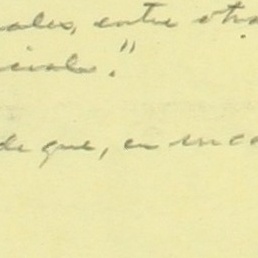 ales, entre otra
ciales."
de que, en